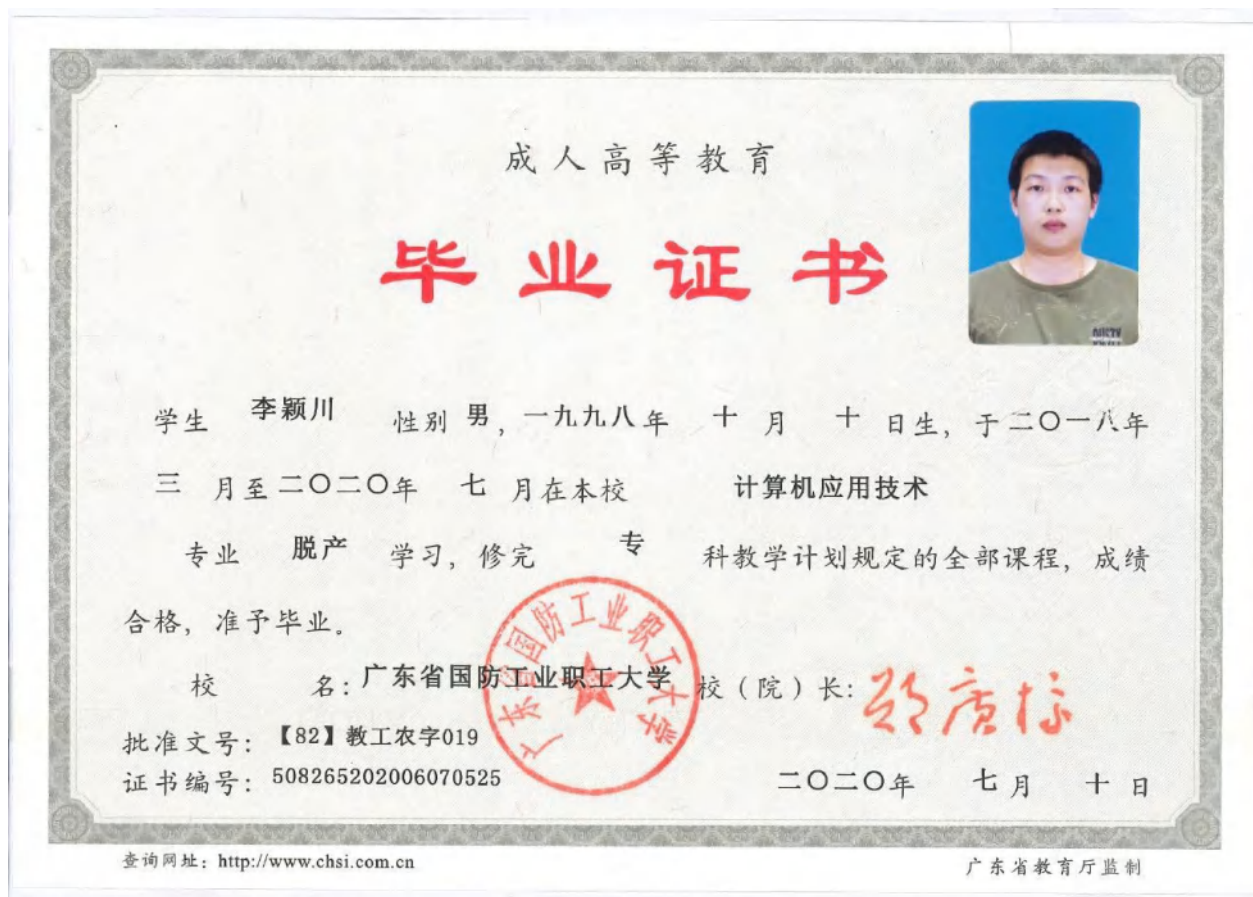 成人高等教育
毕业证书
学生 李颖川 性别 男，一九九八年 十 月 十 日生，于二〇一八年
三 月至二〇二〇年 七 月在本校 计算机应用技术
专业 脱产 学习，修完 专 科教学计划规定的全部课程，成绩
合格，准予毕业。
校 名：广东省国防工业职工大学 校（院）长：
广东省国防工业职工大学
批准文号：【82】教工农字019
证书编号：508265202006070525 二〇二〇年 七 月 十 日
查询网址：http://www.chsi.com.cn 广东省教育厅监制